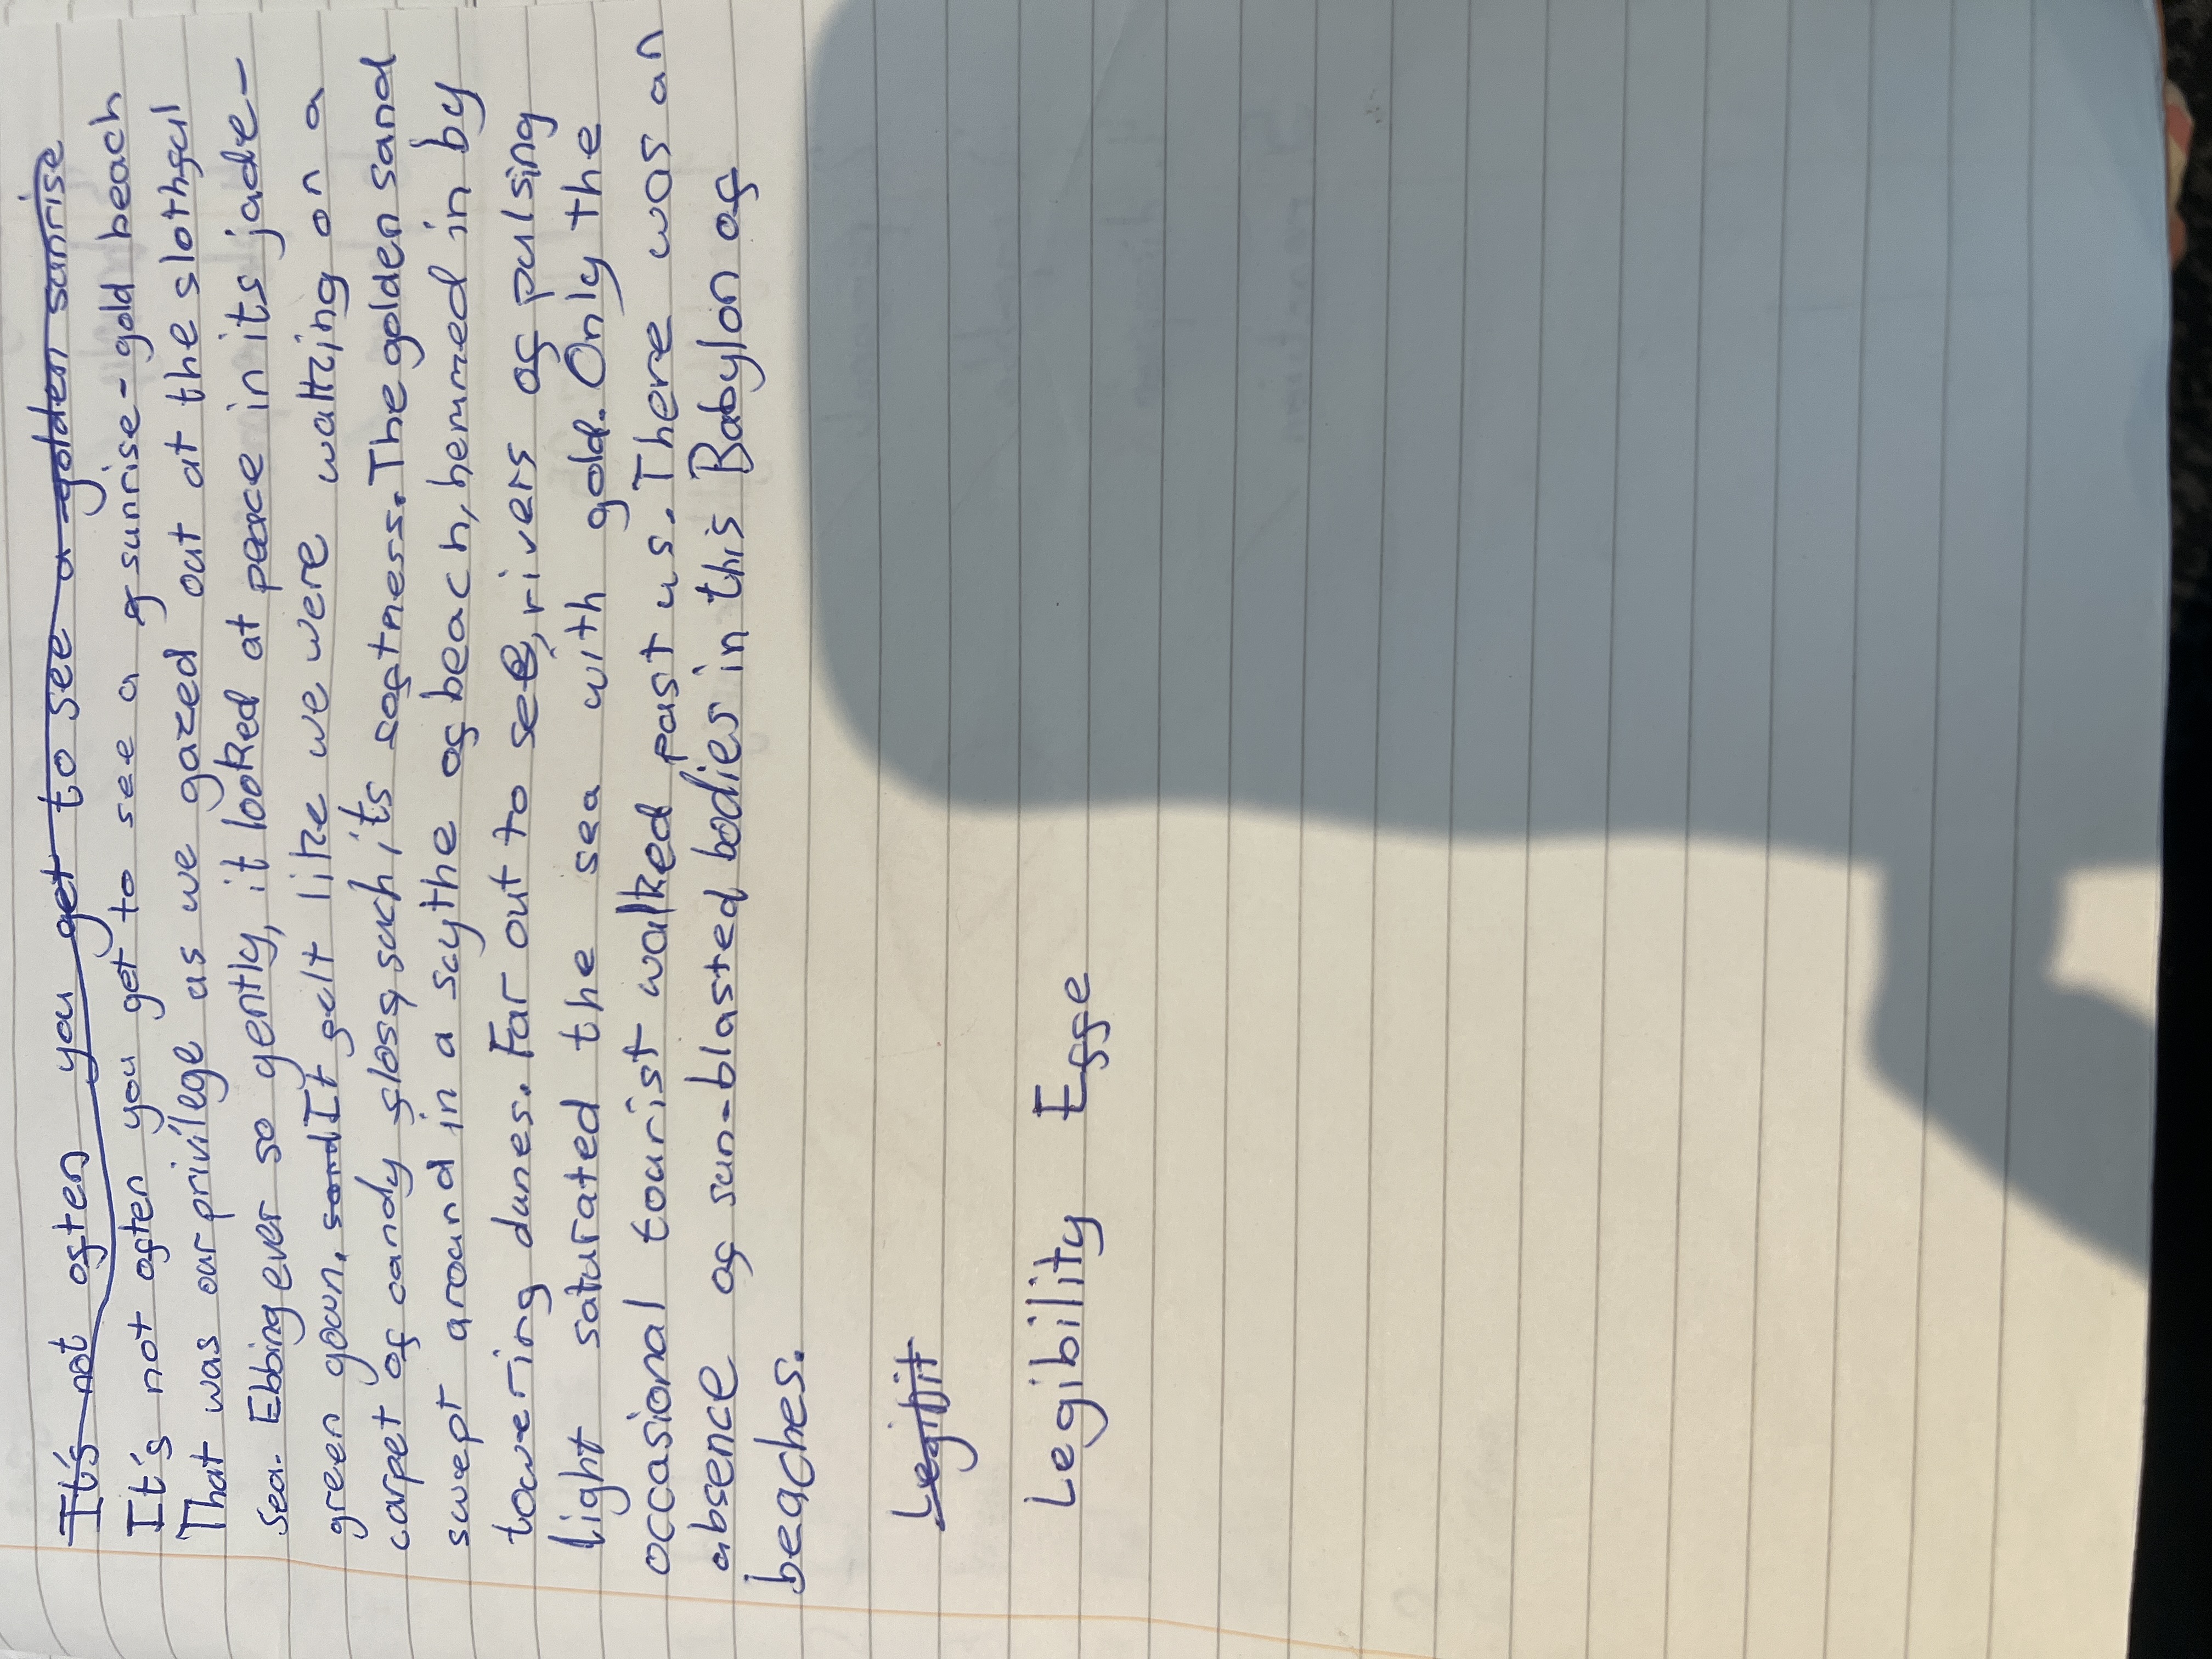 It's not often you get to see a golden sunrise
It's not often you get to see a sunrise-gold beach
That was our privilege as we gazed out at the slothful
sea. Ebbing ever so gently, it looked at peace in its jade-
green gown. It felt like we were waltzing on a
carpet of candy floss, such its softness. The golden sand
swept around in a scythe of beach, hemmed in by
towering dunes. Far out to see, rivers of pulsing
light saturated the sea with gold. Only the
occasional tourist walked past us. There was an
absence of sun-blasted bodies in this Babylon of
beaches.
Legibility Effe